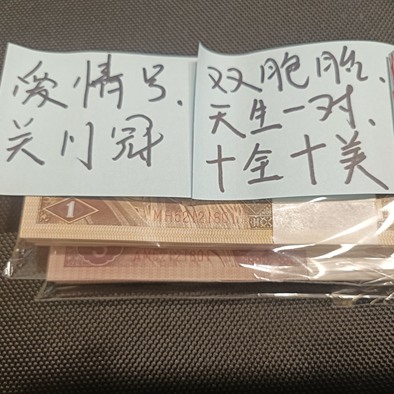 爱情号.
关门冠
双胞胎、
天生一对、
十全十美
1
MH52121801